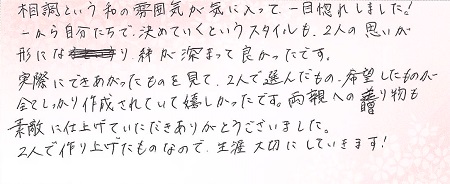 相調という和の雰囲気が気に入って、一目惚れしました!
一から自分たちで、決めていくというスタイルも、2人の思いが
形になり、絆が深まって良かったです。
実際にできあがったものを見て、2人で選んだもの、希望したものが
全てしっかり作成されていて嬉しかったです。両親への贈り物も
素敵に仕上げていただきありがとうございました。
2人で作り上げたものなので、生涯大切にしていきます!